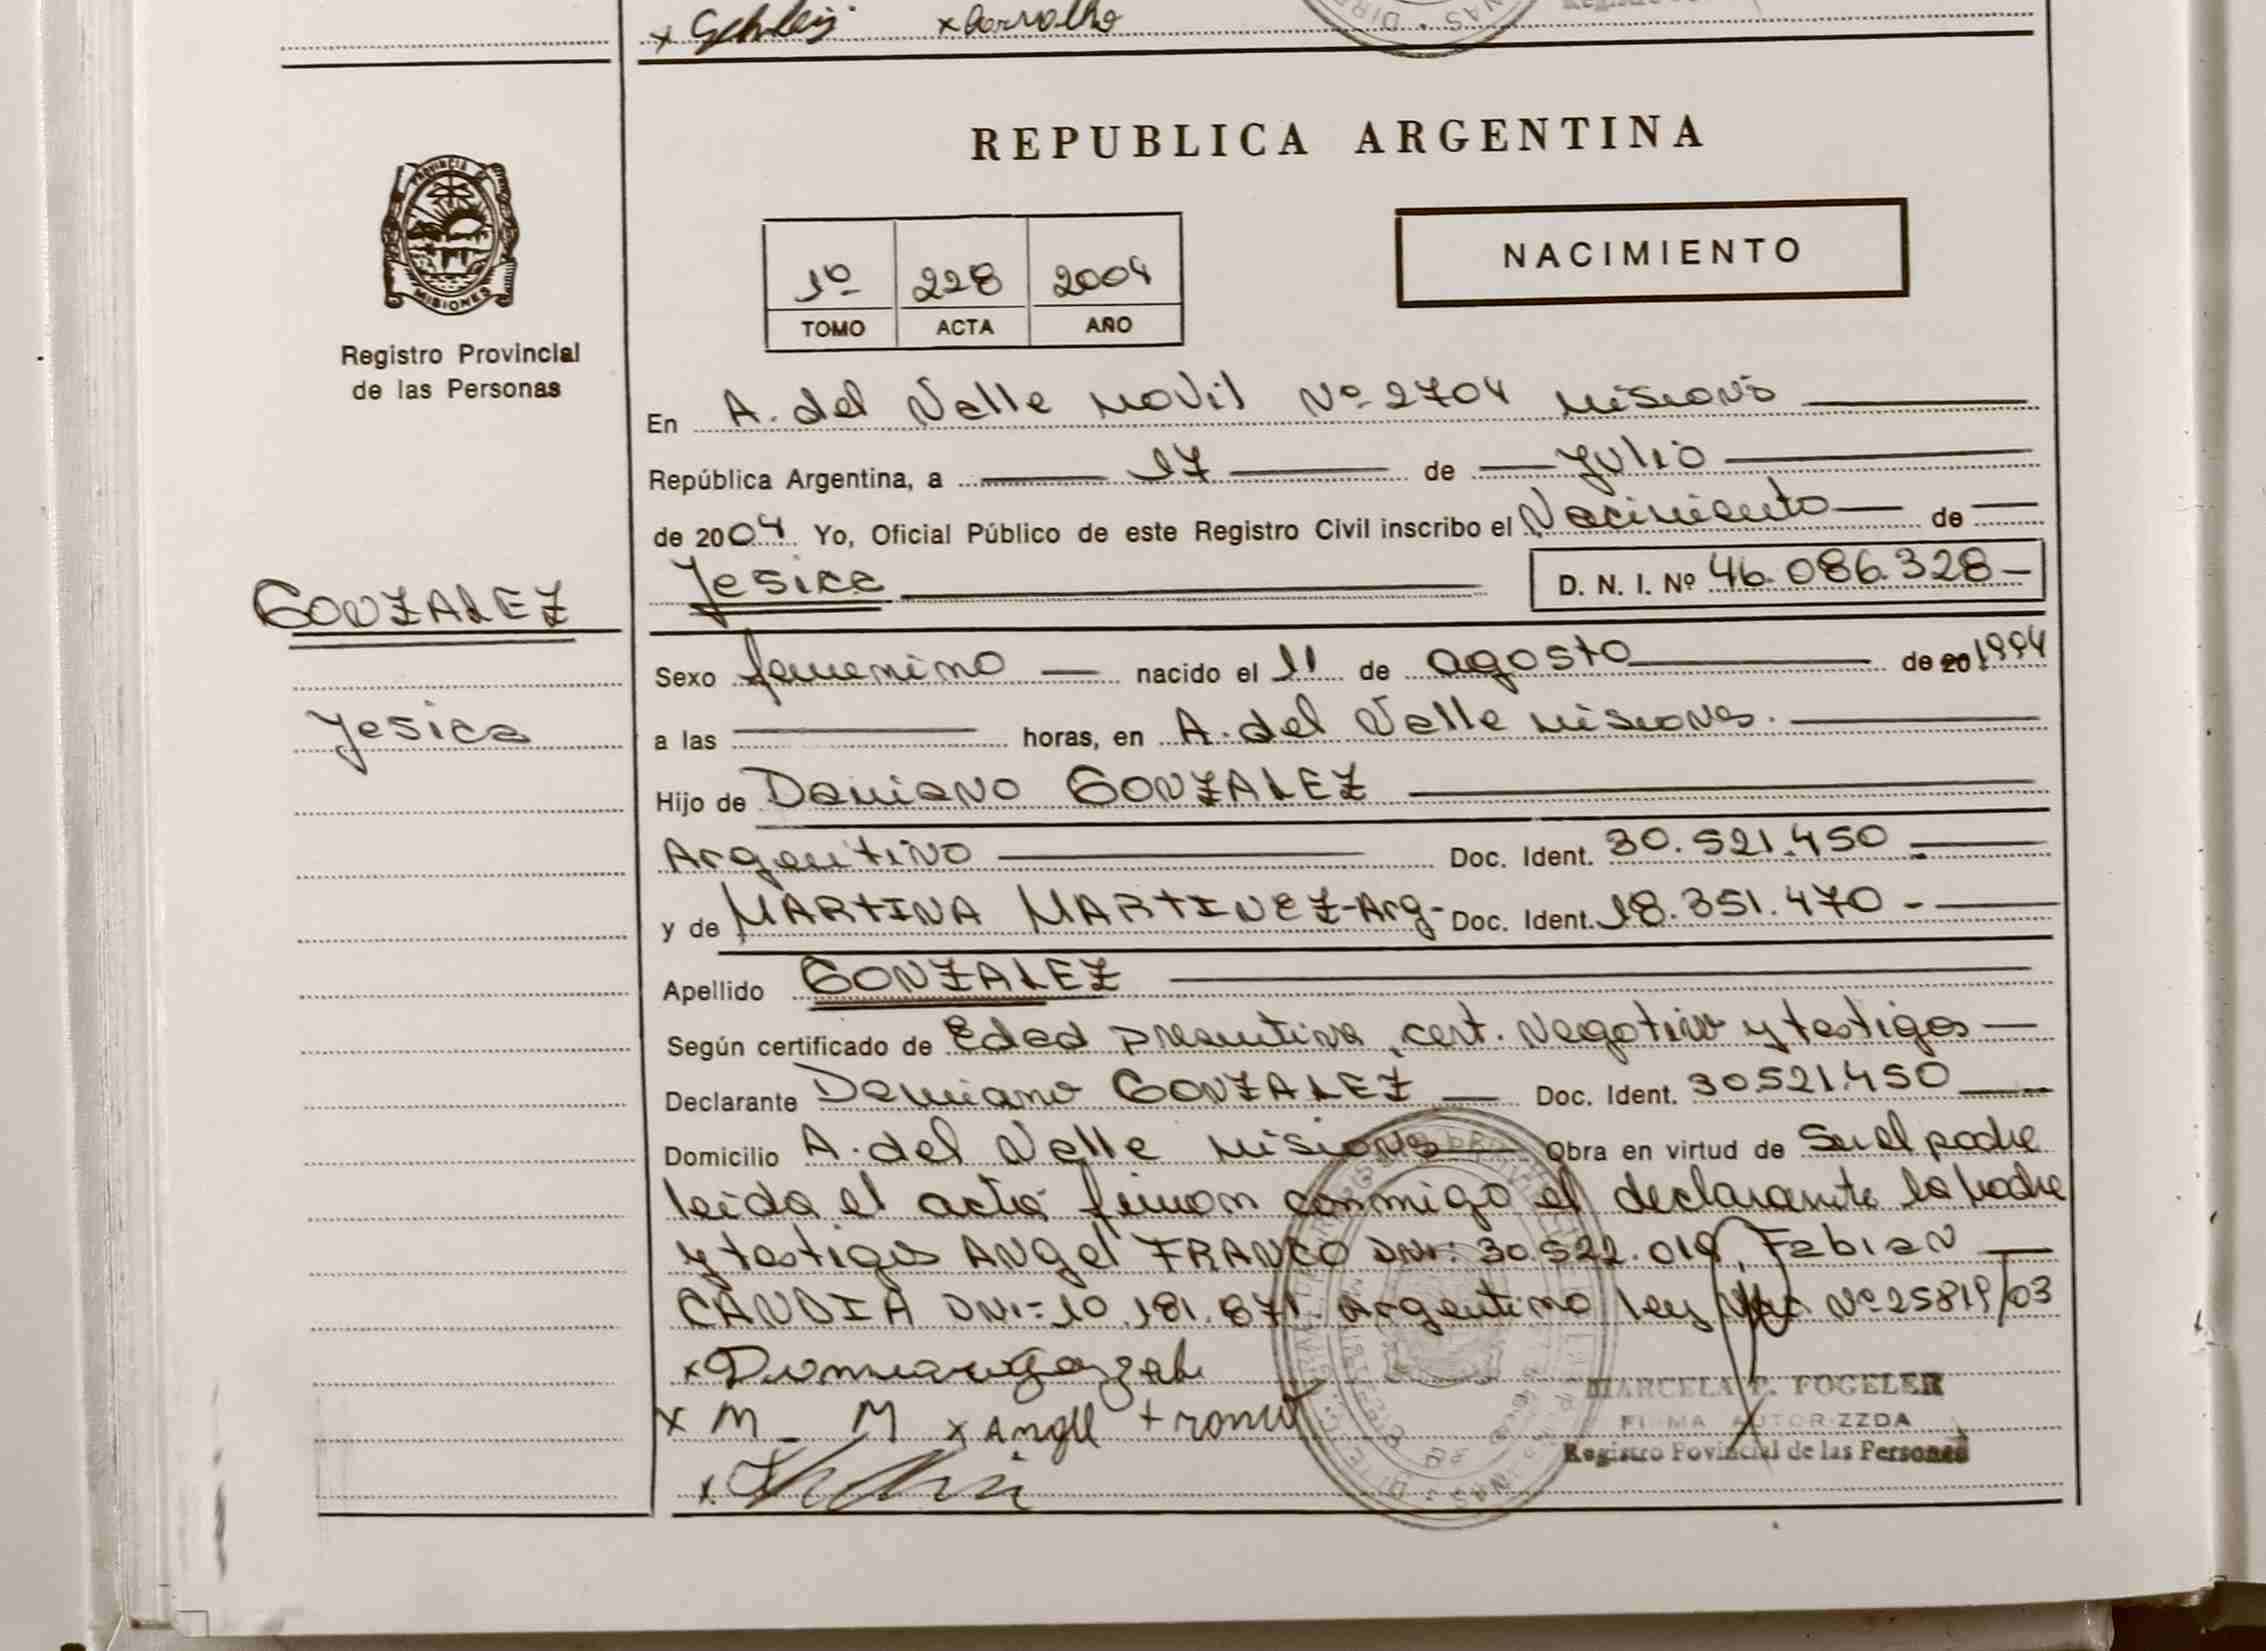 x Carvalho
REPUBLICA ARGENTINA
PROVINCIA DE
MISIONES
Registro Provincial
de las Personas
NACIMIENTO
1º 228 2004
TOMO ACTA AÑO
En A. del Valle Movil Nº 2704 Misiones
República Argentina, a 17 de Julio
de 2004 Yo, Oficial Público de este Registro Civil inscribo el Nacimiento de
Yesica D. N. I. Nº 46.086.328
GONZALEZ
Sexo femenino nacido el 11 de agosto de 20 1994
Yesica
a las horas, en A. del Valle Misiones.
Hijo de Damiano GONZALEZ
Argentino Doc. Ident. 30.521.450
y de MARTINA MARTINEZ-Arg- Doc. Ident. 18.351.470
Apellido GONZALEZ
Según certificado de Edad presuntiva, cert. Negativo y testigos
Declarante Damiano GONZALEZ Doc. Ident. 30.521.450
Domicilio A. del Valle Misiones Obra en virtud de Ser el padre
leida el acta firman conmigo el declarante la Madre
y testigos ANgel FRANCO DNI: 30.522.019, Fabian
CANDIA DNI:-10.181.871. Argentino ley Nº 25819/03
x Damiano Gonzale
x M M x Angel Franco
MARCELA F. FOGELER
FIRMA AUTORIZZDA
Registro Povincial de las Personas